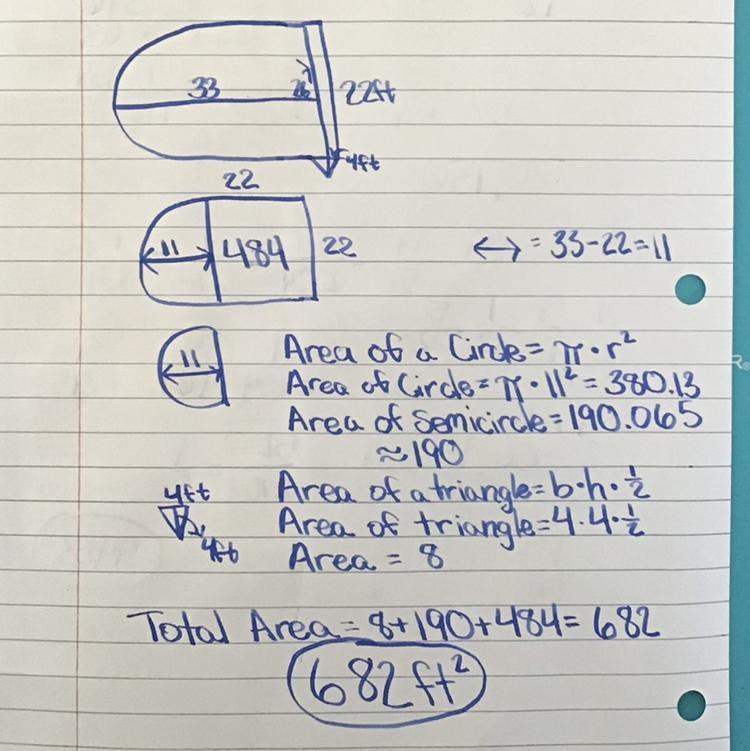 33
22ft
4ft
22
11
484
22
↔ = 33-22=11
11
Area of a Circle= π·r²
Area of Circle= π·11² = 380.13
Area of Semicircle=190.065
≈190
4ft
4ft
Area of a triangle=b·h·½
Area of triangle=4·4·½
Area = 8
Total Area= 8+190+484= 682
682ft²